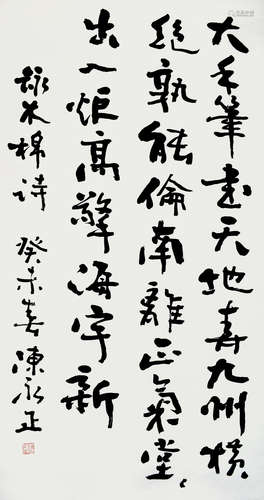 大手筆書天地春九州橫
絕孰能倫南離正氣堂々
出炬高擎海宇新
詠木棉詩 癸未春 陳永正